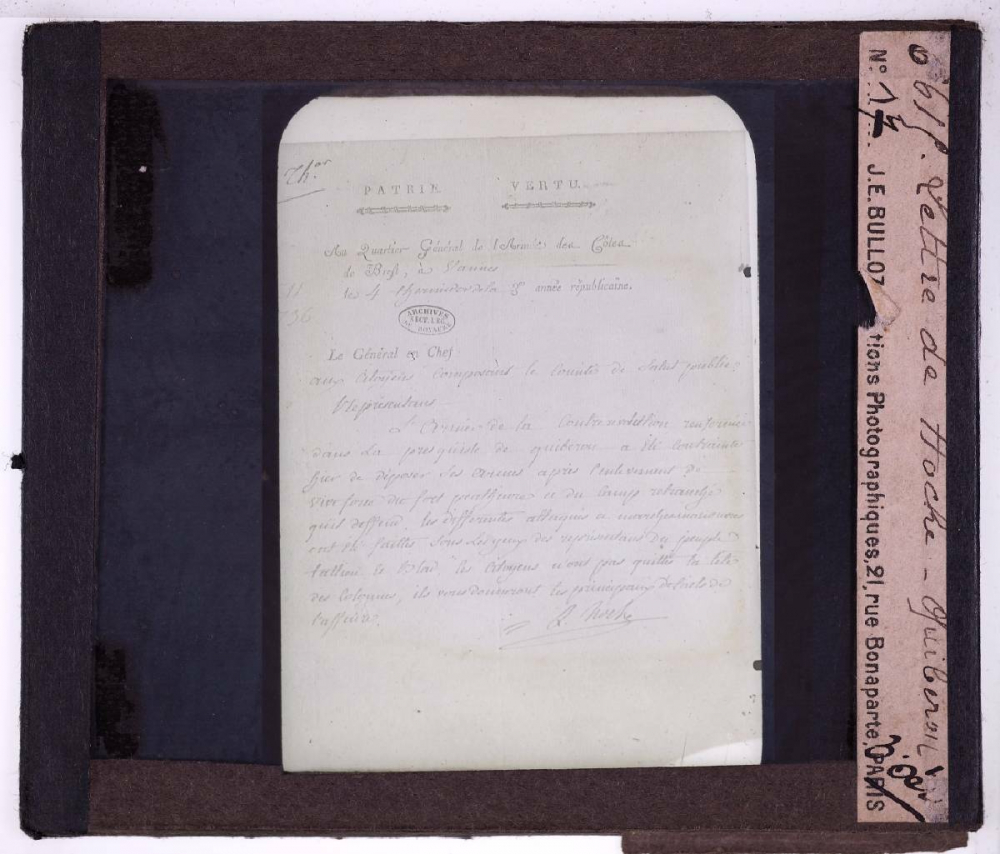 Th.or
PATRIE VERTU
Au Quartier Général de l'Armée des Côtes
de Brest, à Vannes
les 4 thermidor de la 3e année républicaine.
ARCHIVES
SECT. LEG.
DU ROYAUME
Le Général en Chef
aux Citoyens composant le Comité de Salut public
Représentans
L'Armée de la Contrerévolution renfermée
dans La presquisle de quiberon a été contrainte
hier de déposer ses armes après l'enlevement de
vive force du fort penthievre et du camp retranché
quil deffend. les differentes attaques
ont été faittes sous les yeux des représentans du peuple
tallien et Blad. les citoyens n'ont pas quitté la tête
des Colonnes, ils vous donneront les principaux détails de
l'affaire.
L. Hoche
Lettre de Hoche - Quiberon
N° 17 J.E. BULLOZ tions Photographiques, 21, rue Bonaparte, PARIS